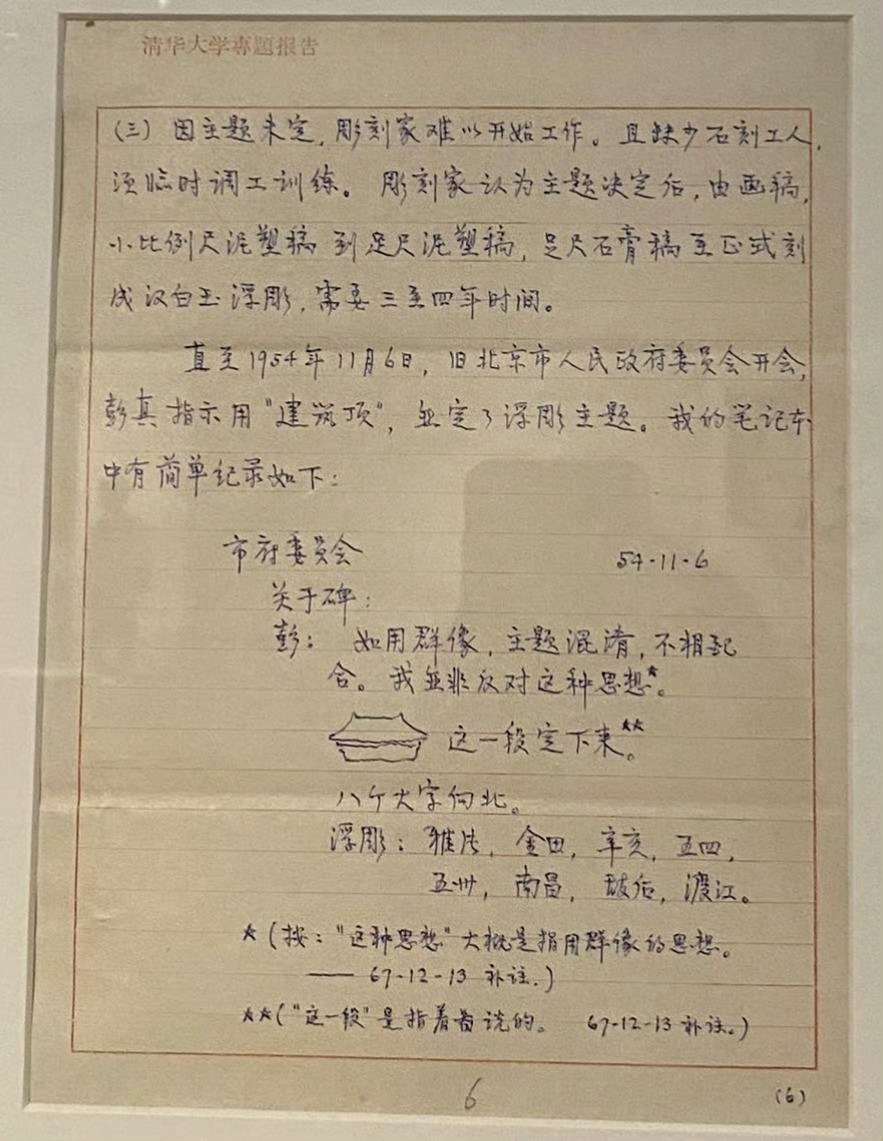 清华大学专题报告
(三) 因主题未定，彫刻家难以开始工作。且缺少石刻工人，
须临时调工训练。彫刻家认为主题决定后，由画稿，
小比例尺泥塑稿到足尺泥塑稿，足尺石膏稿至正式刻
成汉白玉浮彫，需要三至四年时间。
直至1954年11月6日，旧北京市人民政府委员会开会，
彭真指示用“建筑顶”，並定了浮彫主题。我的笔记本
中有简单纪录如下：
市府委员会 54-11-6
关于碑：
彭： 如用群像，主题混淆，不相配
合。我並非反对这种思想★。
这一段定下来★★。
八个大字向北。
浮彫：鸦片，金田，辛亥，五四，
五卅，南昌，敌后，渡江。
★(按：“这种思想”大概是指用群像的思想。
—— 67-12-13 补注.)
★★(“这一段”是指着图说的。 67-12-13 补注。)
6
(6)